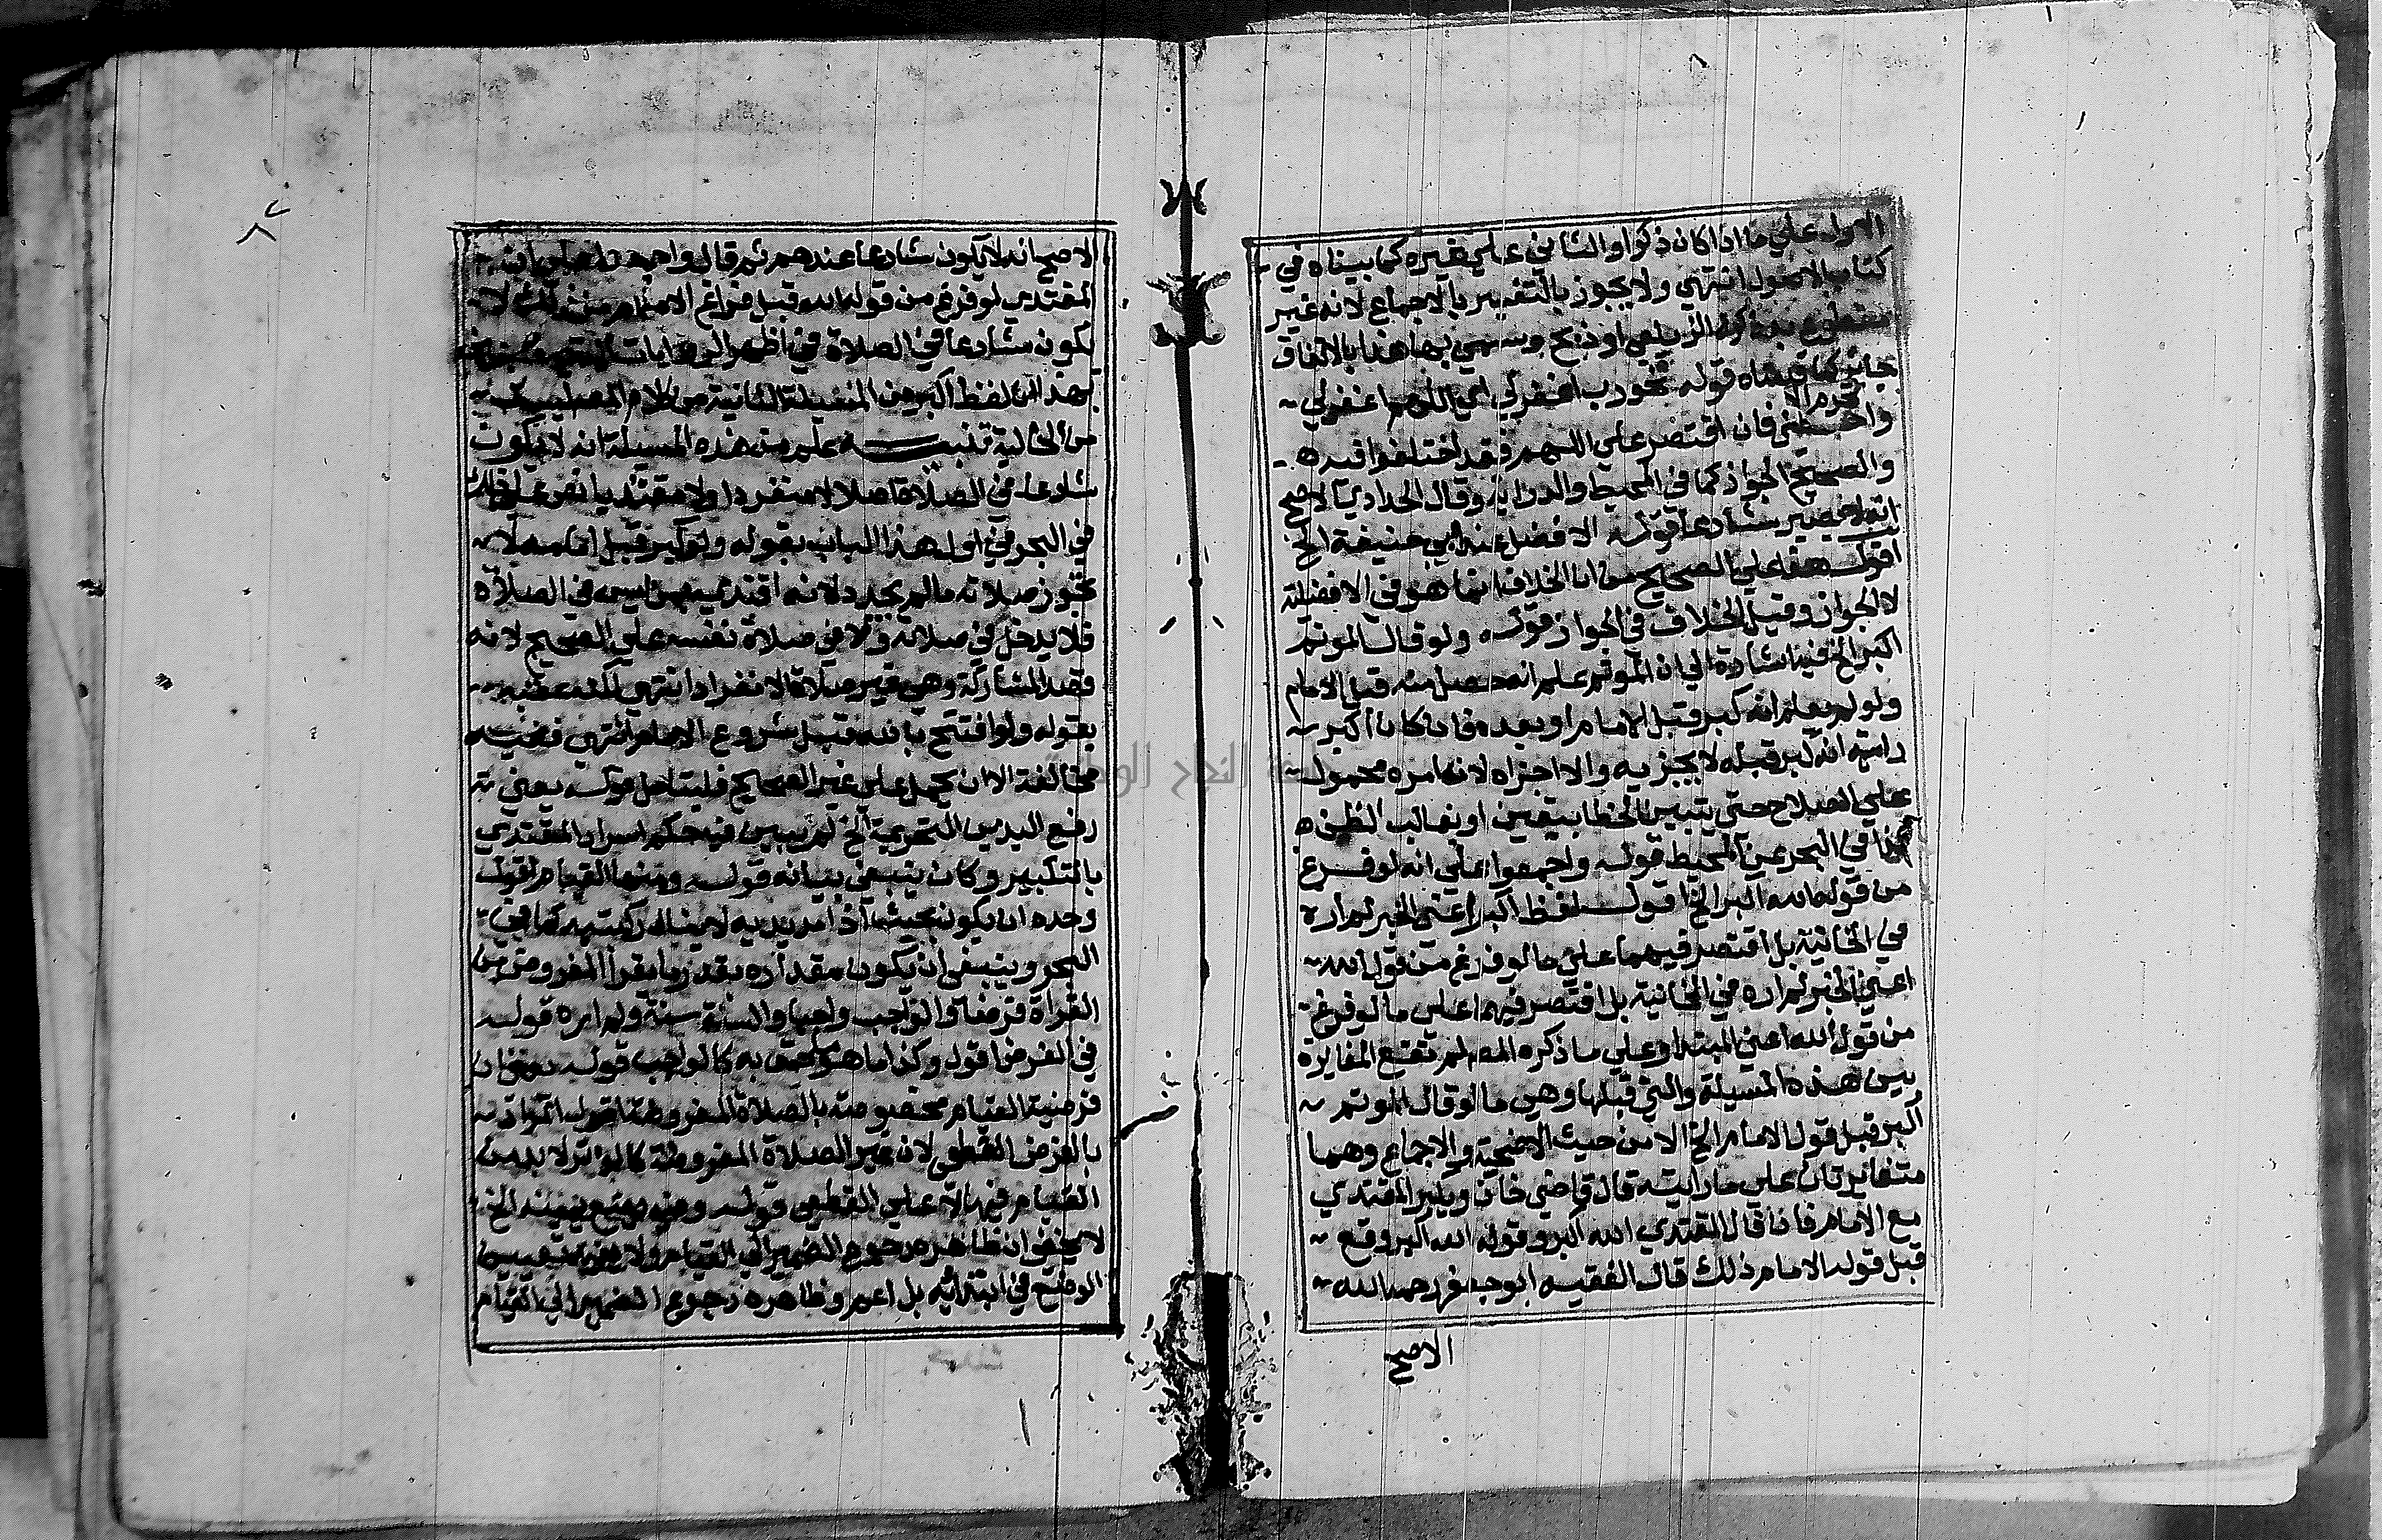 الاول علي ما اذا كان ذكوا والثاني علي غيره كما بيناه في
كتاب الاصول انتهي ولا يجوز بالتفسير بالاجماع لانه غير
او ذبح وسمي بها هنا بالاتفاق
جائز كما قوله نحو رب اغفر لي اي اللهم اغفر لي
فان اقتصر علي اللهم فقد اختلفوا فيه
والصحيح الجواز كما في المحيط والدراية وقال الحدادي الاصح
انه لا يصير شارعا قوله الافضل عند ابي حنيفة الخ
اقول هذا علي الصحيح من ان الخلاف انما هو في الافضلية
لا الجواز وقيل الخلاف في الجواز قوله ولو قال الموتم
اكبر الخ فيه اشارة الي ان الموتم علم انه حصل منه قبل الامام
ولو لم يعلم انه كبر قبل الامام او بعده فان كان اكبر
رايه انه كبر قبله لا يجزيه والا اجزاه لان امره محمول
علي الصلاح حتي يتبين الخطا بيقين او بغالب الظن
كذا في البحر عن المحيط قوله واجمعوا علي انه لو فرغ
من قوله الله اكبر الخ اقول لفظ اكبر اعني الخبر لم اره
في الخانية بل اقتصر فيهما علي ما لو فرغ من قول الله
اعني الخبر لم اره في الخانية بل اقتصر فيهما علي ما لو فرغ
من قول الله اعني المبتدا وعلي ما ذكره المص لم تقع المغايرة
بين هذه المسيلة والتي قبلها وهي ما لو قال الموتم
اكبر قبل قول الامام الخ الا من حيث الاصحية والاجماع وهما
متغايرتان علي ما رايته قال قاضي خان ويكبر المقتدي
مع الامام فان قال المقتدي الله اكبر وقوله الله اكبر وقع
قبل قول الامام ذلك قال الفقيه ابو جعفر رحمه الله
الاصح
الاصح انه لا يكون شارعا عندهم ثم قال واجمعوا علي ان
المقتدي لو فرغ من قوله الله قبل فراغ الامام من ذلك لا
يكون شارعا في الصلاة في اظهر الروايات
بهذا ان لفظ اكبر في المسيلة الثانية من كلام المص ليس
من الخانية تنبيه علم من هذه المسيلة انه لا يكون
شارعا في الصلاة اصلا لا منفردا ولا مقتديا نص علي ذلك
في البحر في اول هذا الباب بقوله ولو كبر قبل امامه لا
تجوز صلاته ما لم يجدد لانه اقتدي بمن ليس في الصلاة
فلا يدخل في صلاته ولا في صلاة نفسه علي الصحيح لانه
قصد المشاركة وهي غير صلاة الانفراد انتهي لكنه عقبه
بقوله ولو افتتح بالله قبل شروع الامام انتهي ففيه
مخالفة الا ان يحمل علي غير الصحيح فليتامل قوله يعني
رفع اليدين التحريمة الخ لم يبين فيه حكم اسرار المقتدي
بالتكبير وكان ينبغي بيانه قوله ومنها القيام اقول
وحده ان يكون بحيث اذا مد يديه لا ينال ركبتيه كما في
البحر وينبغي ان يكون مقداره بقدر ما يقرا المفروض من
القراة فرضا والواجب واجبا والسنة سنة ولم اره قوله
في الفرض اقول وكذا ما هو ملحق به كالواجب قوله يعني ان
فرضية القيام مخصوصة بالصلاة المفروضة اقول المراد
بالفرض القطعي لان غير الصلاة المفروضة كالوتر لا بد من
القيام فيها لا علي القطعي قوله ومنه يضع يمينه الخ
لا يخفي ان ظاهره مرجوع الضمير الي القيام
الوضع في ابتدائه بل اعم وظاهره رجوع الضمير الي القيام